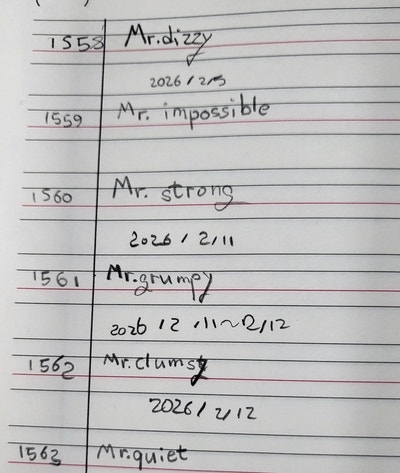 1558 Mr.dizzy
2026/2/5
1559 Mr. impossible
1560 Mr. strong
2026/2/11
1561 Mr.grumpy
2026/2/11~2/12
1562 Mr.clumsy
2026/2/12
1563 Mr.quiet